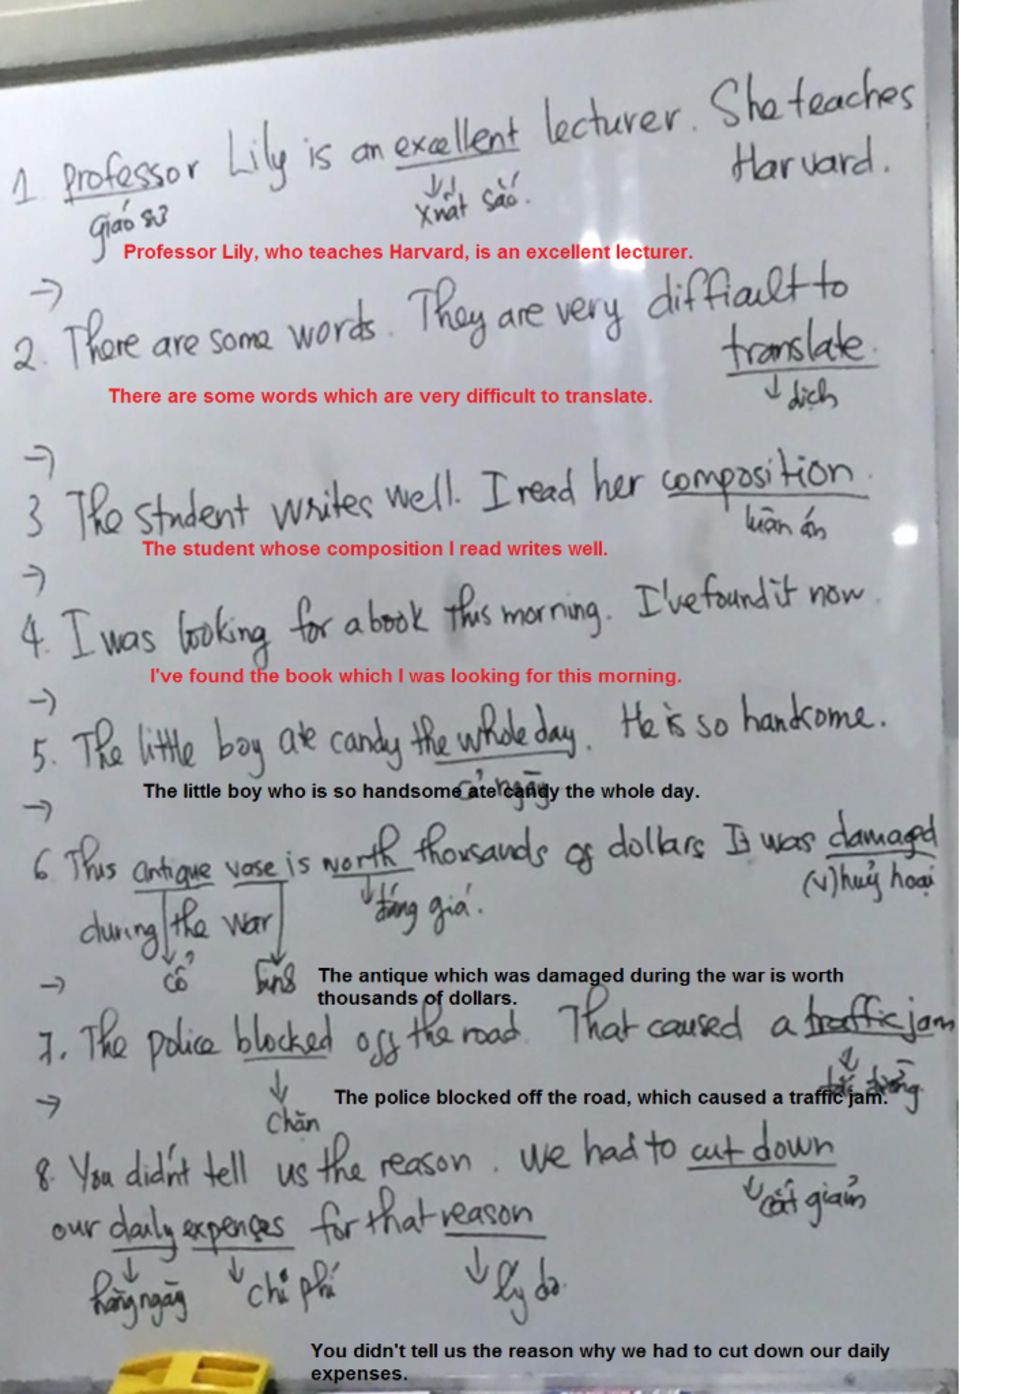 1. Professor Lily is an excellent lecturer. She teaches
Harvard.
giáo sư
↓ xuất sắc.
Professor Lily, who teaches Harvard, is an excellent lecturer.
→
2. There are some words. They are very difficult to
translate.
There are some words which are very difficult to translate.
↓ dịch
→
3 The student writes well. I read her composition.
luận án
The student whose composition I read writes well.
→
4. I was looking for a book this morning. I've found it now.
I've found the book which I was looking for this morning.
→
5. The little boy ate candy the whole day. He is so handsome.
cả ngày
The little boy who is so handsome ate candy the whole day.
→
6 This antique vase is worth thousands of dollars It was damaged
↓ đáng giá.
(v) huỷ hoại
during the war
↓ cổ
→
The antique which was damaged during the war is worth
thousands of dollars.
7. The police blocked off the road. That caused a traffic jam
↓
→
The police blocked off the road, which caused a traffic jam.
chặn
8. You didn't tell us the reason. We had to cut down
↓ cắt giảm
our daily expenses for that reason
↓ hàng ngày ↓ chi phí ↓ lý do.
You didn't tell us the reason why we had to cut down our daily
expenses.